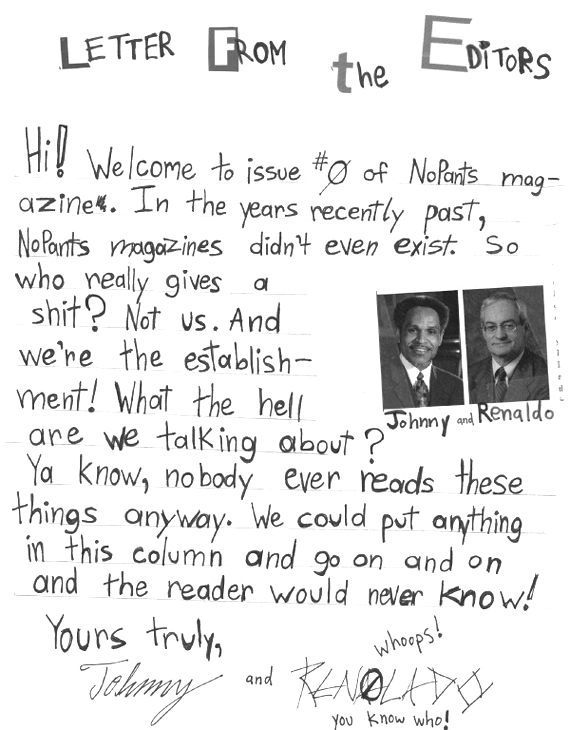 LETTER FROM the EDITORS
Hi! Welcome to issue #0 of NoPants mag-
azine. In the years recently past,
NoPants magazines didn't even exist. So
who really gives a
shit? Not us. And
we're the establish-
ment! What the hell
are we talking about?
Johnny and Renaldo
Ya know, nobody ever reads these
things anyway. We could put anything
in this column and go on and on
and the reader would never know!
Yours truly,
Johnny and RENOLADO
whoops!
you know who!